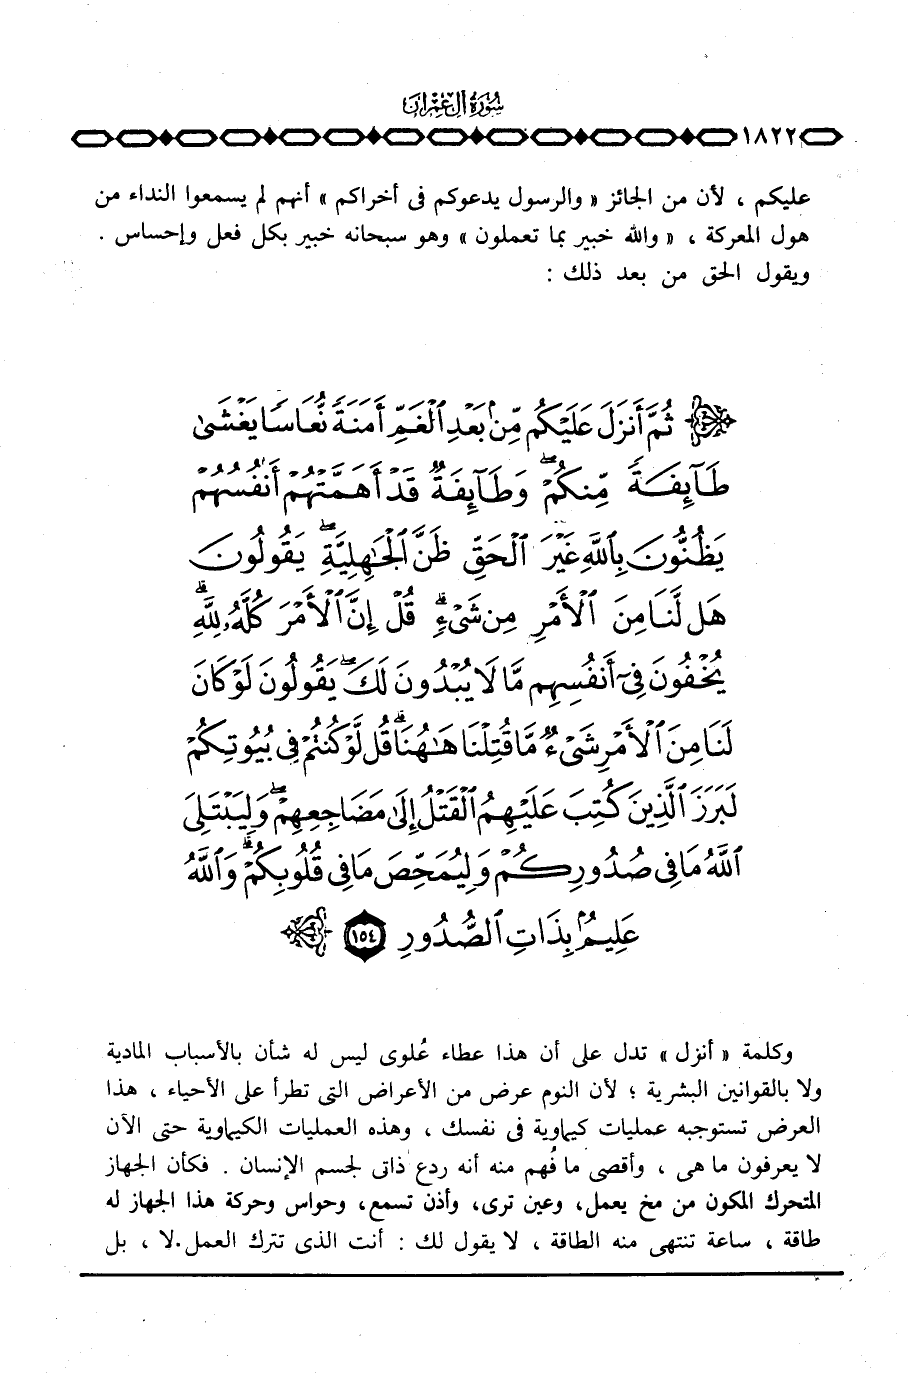 سورة آل عمران
١٨٢٢
عليكم ، لأن من الجائز « والرسول يدعوكم فى أخراكم » أنهم لم يسمعوا النداء من
هول المعركة ، « والله خبير بما تعملون » وهو سبحانه خبير بكل فعل وإحساس .
ويقول الحق من بعد ذلك :
ثُمَّ أَنزَلَ عَلَيْكُم مِّنۢ بَعْدِ ٱلْغَمِّ أَمَنَةً نُّعَاسًا يَغْشَىٰ
طَآئِفَةً مِّنكُمْ ۖ وَطَآئِفَةٌ قَدْ أَهَمَّتْهُمْ أَنفُسُهُمْ
يَظُنُّونَ بِٱللَّهِ غَيْرَ ٱلْحَقِّ ظَنَّ ٱلْجَٰهِلِيَّةِ ۖ يَقُولُونَ
هَل لَّنَا مِنَ ٱلْأَمْرِ مِن شَىْءٍ ۗ قُلْ إِنَّ ٱلْأَمْرَ كُلَّهُۥ لِلَّهِ ۗ
يُخْفُونَ فِىٓ أَنفُسِهِم مَّا لَا يُبْدُونَ لَكَ ۖ يَقُولُونَ لَوْ كَانَ
لَنَا مِنَ ٱلْأَمْرِ شَىْءٌ مَّا قُتِلْنَا هَٰهُنَا ۗ قُل لَّوْ كُنتُمْ فِى بُيُوتِكُمْ
لَبَرَزَ ٱلَّذِينَ كُتِبَ عَلَيْهِمُ ٱلْقَتْلُ إِلَىٰ مَضَاجِعِهِمْ ۖ وَلِيَبْتَلِىَ
ٱللَّهُ مَا فِى صُدُورِكُمْ وَلِيُمَحِّصَ مَا فِى قُلُوبِكُمْ ۗ وَٱللَّهُ
عَلِيمٌۢ بِذَاتِ ٱلصُّدُورِ ١٥٤
وكلمة « أنزل » تدل على أن هذا عطاء عُلوى ليس له شأن بالأسباب المادية
ولا بالقوانين البشرية ؛ لأن النوم عرض من الأعراض التى تطرأ على الأحياء ، هذا
العرض تستوجبه عمليات كيماوية فى نفسك ، وهذه العمليات الكيماوية حتى الآن
لا يعرفون ما هى ، وأقصى ما فُهم منه أنه ردع ذاتى لجسم الإنسان . فكأن الجهاز
المتحرك المكون من مخ يعمل، وعين ترى، وأذن تسمع، وحواس وحركة هذا الجهاز له
طاقة ، ساعة تنتهى منه الطاقة ، لا يقول لك : أنت الذى تترك العمل.لا ، بل